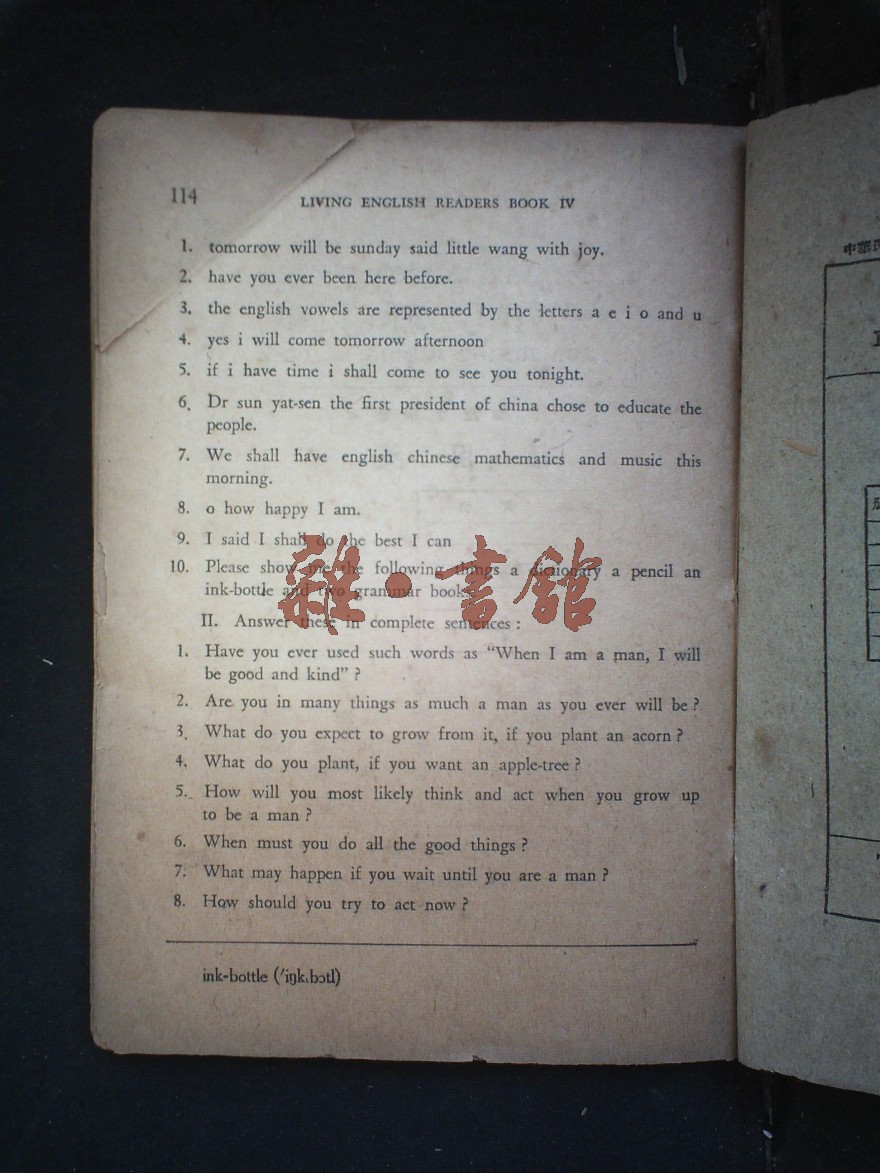 114
LIVING ENGLISH READERS BOOK IV
1. tomorrow will be sunday said little wang with joy.
2. have you ever been here before.
3. the english vowels are represented by the letters a e i o and u
4. yes i will come tomorrow afternoon
5. if i have time i shall come to see you tonight.
6. Dr sun yat-sen the first president of china chose to educate the
people.
7. We shall have english chinese mathematics and music this
morning.
8. o how happy I am.
9. I said I shall do the best I can
10. Please show me the following things a dictionary a pencil an
ink-bottle and two grammar books.
雜·書館
II. Answer these in complete sentences :
1. Have you ever used such words as “When I am a man, I will
be good and kind” ?
2. Are you in many things as much a man as you ever will be ?
3. What do you expect to grow from it, if you plant an acorn ?
4. What do you plant, if you want an apple-tree ?
5. How will you most likely think and act when you grow up
to be a man ?
6. When must you do all the good things ?
7. What may happen if you wait until you are a man ?
8. How should you try to act now ?
ink-bottle (ˈiŋkˌbɔtl)
中華民